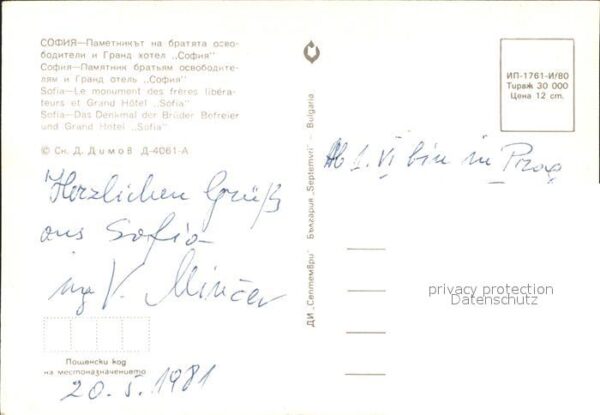 СОФИЯ—Паметникът на братята осво-
бодители и Гранд хотел „София"
София—Памятник братьям освободите-
лям и Гранд отель „София"
Sofia—Le monument des frères libéra-
teurs et Grand Hôtel „Sofia"
Sofia—Das Denkmal der Brüder Befreier
und Grand Hotel „Sofia"
© Ск. Д. Димов Д-4061-А
Herzlichen Grüß
aus Sofia
ing V. Minčev
Пощенски код
на местоназначението
20. 5. 1981
ДИ „Септември" България „Septemvri" — Bulgaria
ИП-1761-И/80
Тираж 30 000
Цена 12 ст.
Ab 1. VI bin in Prag
privacy protection
Datenschutz